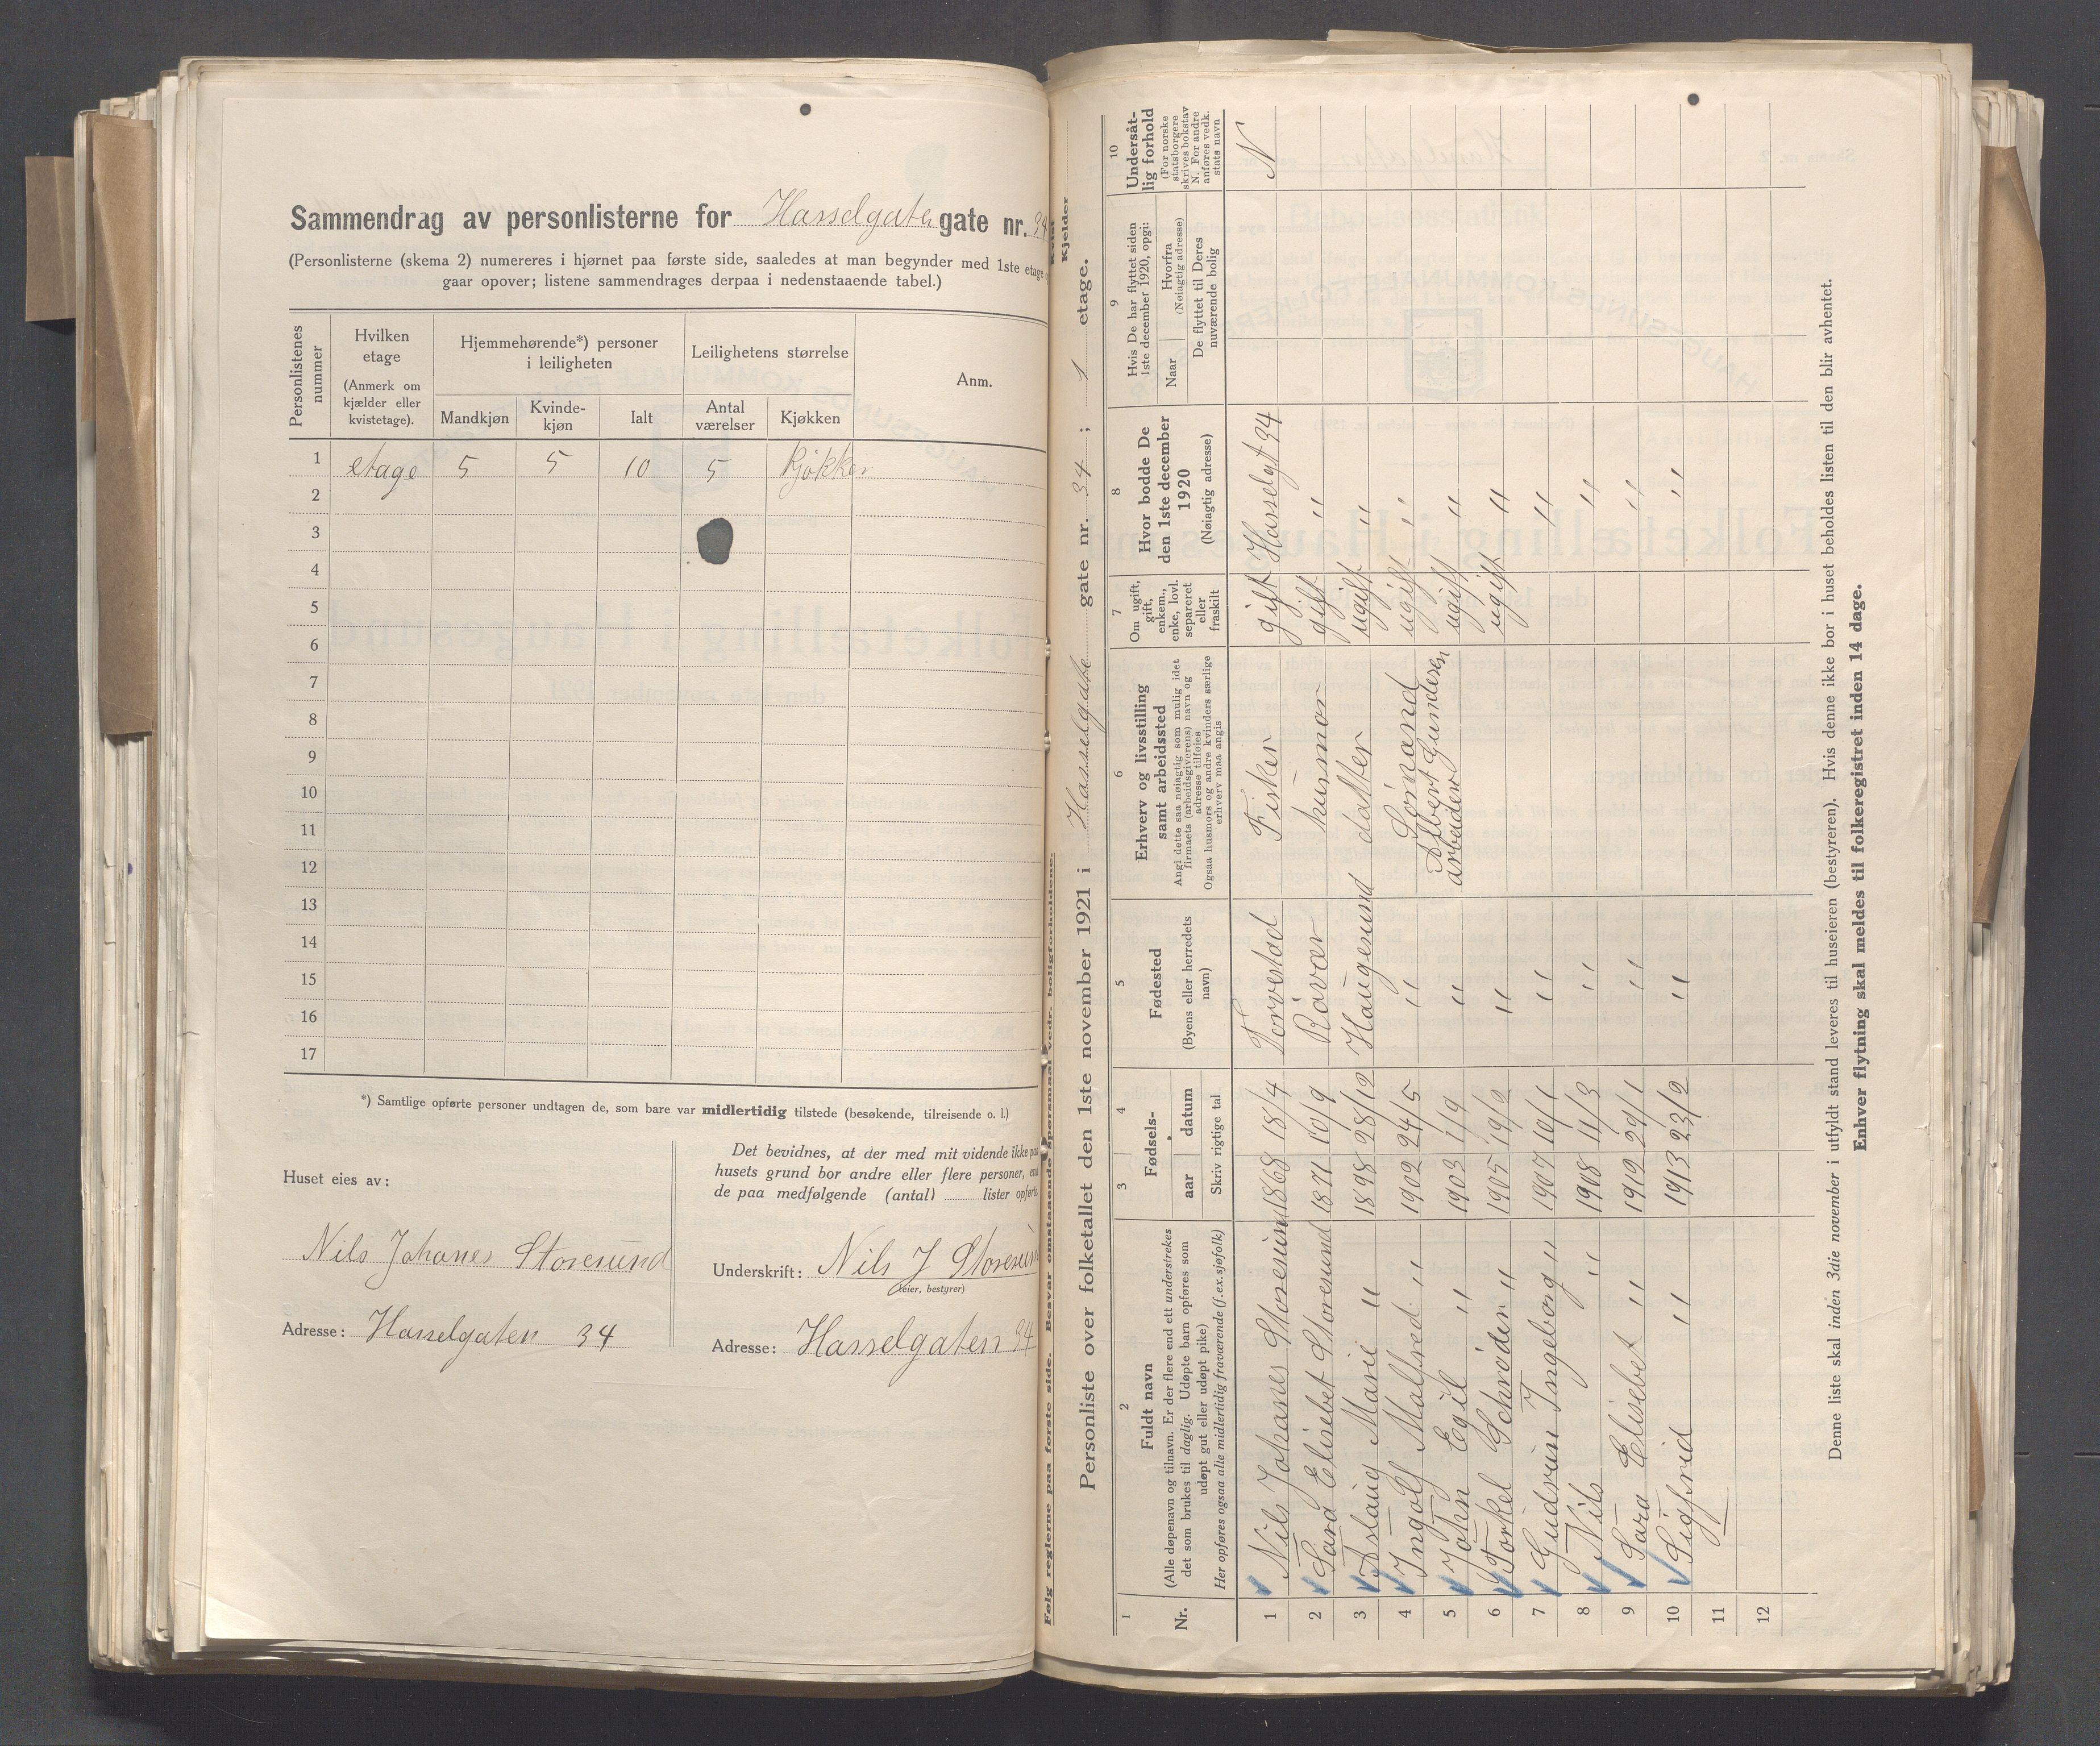 Sammendrag av personlisterne for Hasselgaten gate nr. 34
(Personlisterne (skema 2) numereres i hjørnet paa første side, saaledes at man begynder med 1ste etage
gaar opover; listene sammendrages derpaa i nedenstaaende tabel.)
Personlistenes nummer
Hvilken etage (Anmerk om kjælder eller kvistetage).
Hjemmehørende*) personer i leiligheten
Mandkjøn Kvindekjøn Ialt
Leilighetens størrelse
Antal værelser Kjøkken
Anm.
1 etage 5 5 10 5 kjøkken
2
3
4
5
6
7
8
9
10
11
12
13
14
15
16
17
*) Samtlige opførte personer undtagen de, som bare var midlertidig tilstede (besøkende, tilreisende o. l.)
Huset eies av:
Nils Johanes Storesund
Adresse: Hasselgaten 34
Det bevidnes, at der med mit vidende ikke paa
husets grund bor andre eller flere personer, end
de paa medfølgende (antal) lister opførte
Underskrift: Nils J Storesun
(eier, bestyrer)
Adresse: Hasselgaten 34
Følg reglerne paa første side. Besvar omstaaende spørsmaal vedr. boligforholdene.
Kvist
Kjelder
Personliste over folketallet den 1ste november 1921 i Hasselgate gate nr. 34 ; 1 etage.
1 Nr.
2 Fuldt navn
(Alle døpenavn og tilnavn. Er der flere end ett understrekes
det som brukes til daglig. Udøpte barn opføres som
udøpt gut eller udøpt pike)
Her opføres ogsaa alle midlertidig fraværende (f.ex. sjøfolk)
3 4 Fødsels-
aar datum
Skriv rigtige tal
5 Fødested
(Byens eller herredets navn)
6 Erhverv og livsstilling
samt arbeidssted
Angi dette saa nøiagtig som mulig idet
firmaets (arbeidsgiverens) navn og
adresse tilføies
Ogsaa husmors og andre kvinders særlige
erhverv maa angis
7 Om ugift, gift, enkem., enke, lovl. separeret eller fraskilt
8 Hvor bodde De
den 1ste december
1920
(Nøiagtig adresse)
9 Hvis De har flyttet siden
1ste december 1920, opgi:
Naar Hvorfra (Nøiagtig adresse)
De flyttet til Deres nuværende bolig
10 Undersåtlig forhold
(For norske statsborgere skrives bokstav N. For andre anføres vedk. stats navn
1 Nils Johanes Storesund 1868 18/4 Torvestad Fisker gift Hasselgt 34 N
2 Sara Elisebet Storesund 1871 10/9 Røvær husmor gift "
3 Aslaug Marie " 1898 28/12 Haugesund datter ugift "
4 Ingolf Malfred " 1902 24/5 " Sømand ugift "
5 John Egil " 1903 1/9 " Albert Gundersen arbeider ugift "
6 Torkel Schrøder " 1905 19/2 " ugift "
7 Gudrun Ingeborg " 1907 10/1 " "
8 Nils " 1908 11/3 " "
9 Sara Elisebet " 1912 29/1 " "
10 Sigfrid " 1913 23/2 " "
11
12
Denne liste skal inden 3die november i utfyldt stand leveres til huseieren (bestyreren). Hvis denne ikke bor i huset beholdes listen til den blir avhentet.
Enhver flytning skal meldes til folkeregistret inden 14 dage.